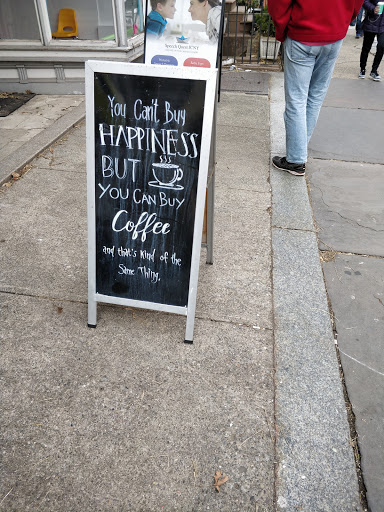 You Can't Buy
HAPPINESS
BUT
YOU CAN BUY
Coffee
and that's kind of the
Same Thing.